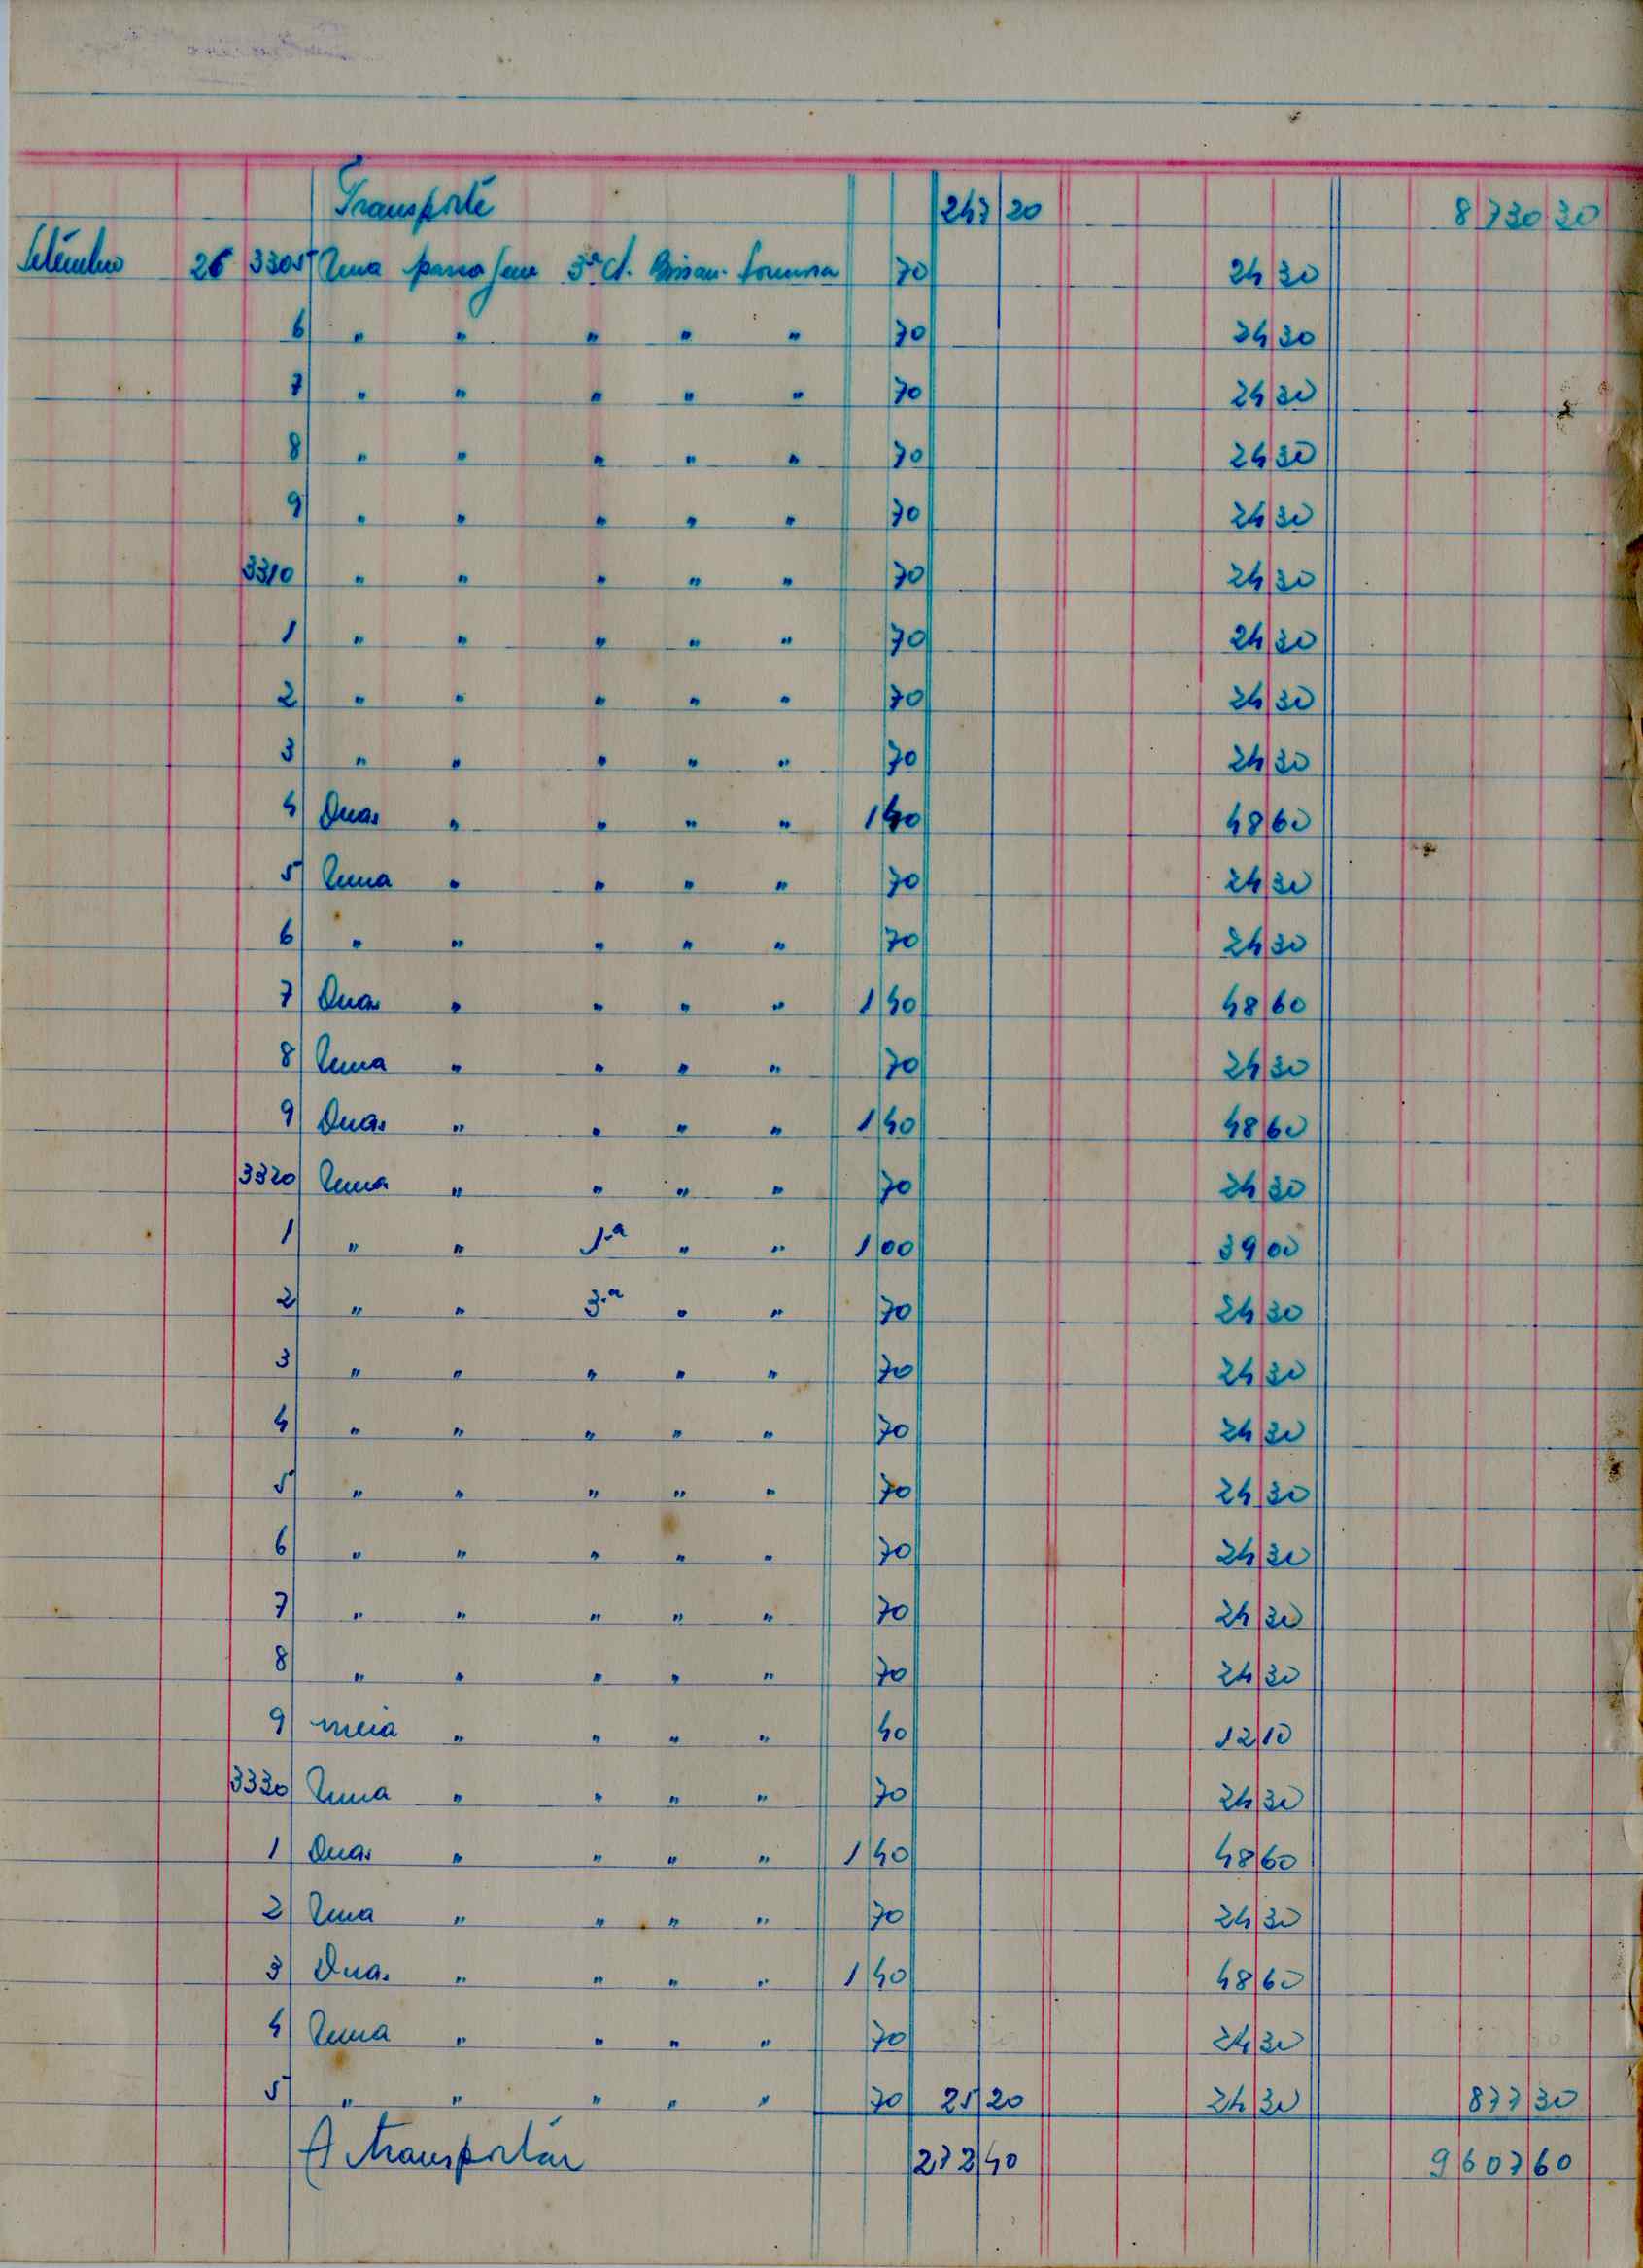 Transporte 247 20 8 730 30
Setembro 26 3305 Uma passagem 3ª cl. Bissau. 70 24 30
6 " " " " " 70 24 30
7 " " " " " 70 24 30
8 " " " " " 70 24 30
9 " " " " " 70 24 30
3310 " " " " " 70 24 30
1 " " " " " 70 24 30
2 " " " " " 70 24 30
3 " " " " " 70 24 30
4 Duas " " " " 1 40 48 60
5 Uma " " " " 70 24 30
6 " " " " " 70 24 30
7 Duas " " " " 1 40 48 60
8 Uma " " " " 70 24 30
9 Duas " " " " 1 40 48 60
3320 Uma " " " " 70 24 30
1 " " 1.ª " " 1 00 39 00
2 " " 3.ª " " 70 24 30
3 " " " " " 70 24 30
4 " " " " " 70 24 30
5 " " " " " 70 24 30
6 " " " " " 70 24 30
7 " " " " " 70 24 30
8 " " " " " 70 24 30
9 meia " " " " 40 12 10
3330 Uma " " " " 70 24 30
1 Duas " " " " 1 40 48 60
2 Uma " " " " 70 24 30
3 Duas " " " " 1 40 48 60
4 Uma " " " " 70 24 30
5 " " " " " 70 25 20 24 30 877 30
A transportar 272 40 9 607 60